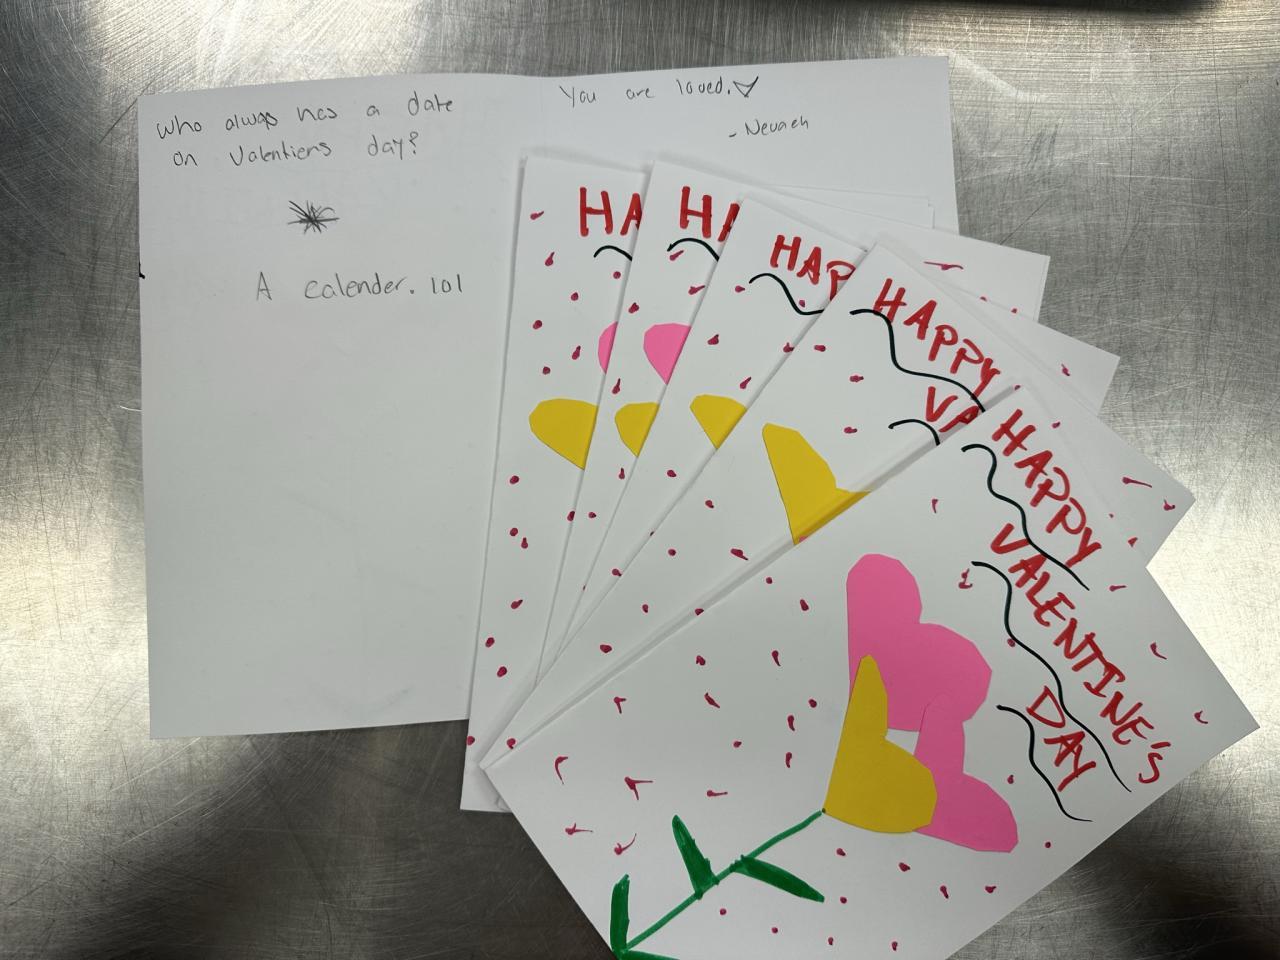 Who always has a date
on Valentiers day?
A calender. lol
You are loved.
- Nevaeh
HA
HA
HAP
HAPPY
VA
HAPPY
VALENTINE'S
DAY